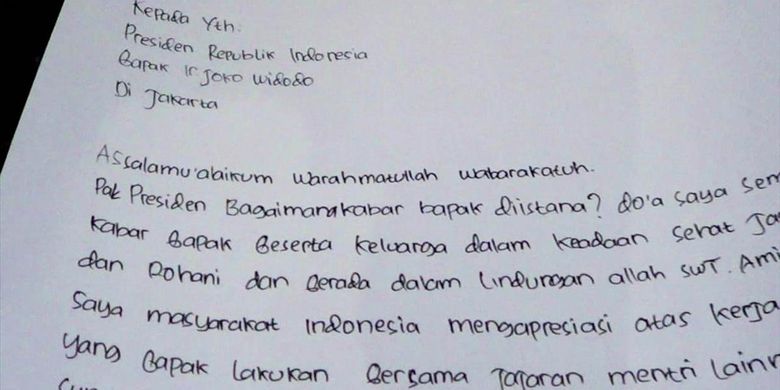 Kepada Yth.
Presiden Republik Indonesia
Bapak Ir Joko Widodo
Di Jakarta
Assalamu'alaikum warahmatullah wabarakatuh.
Pak Presiden Bagaimana kabar bapak diistana? do'a saya sem
kabar Bapak Beserta keluarga dalam keadaan sehat Ja
dan Rohani dan Berada dalam lindungan allah SWT. Ami
Saya masyarakat Indonesia mengapresiasi atas kerja
yang Bapak lakukan Bersama Jajaran mentri lain